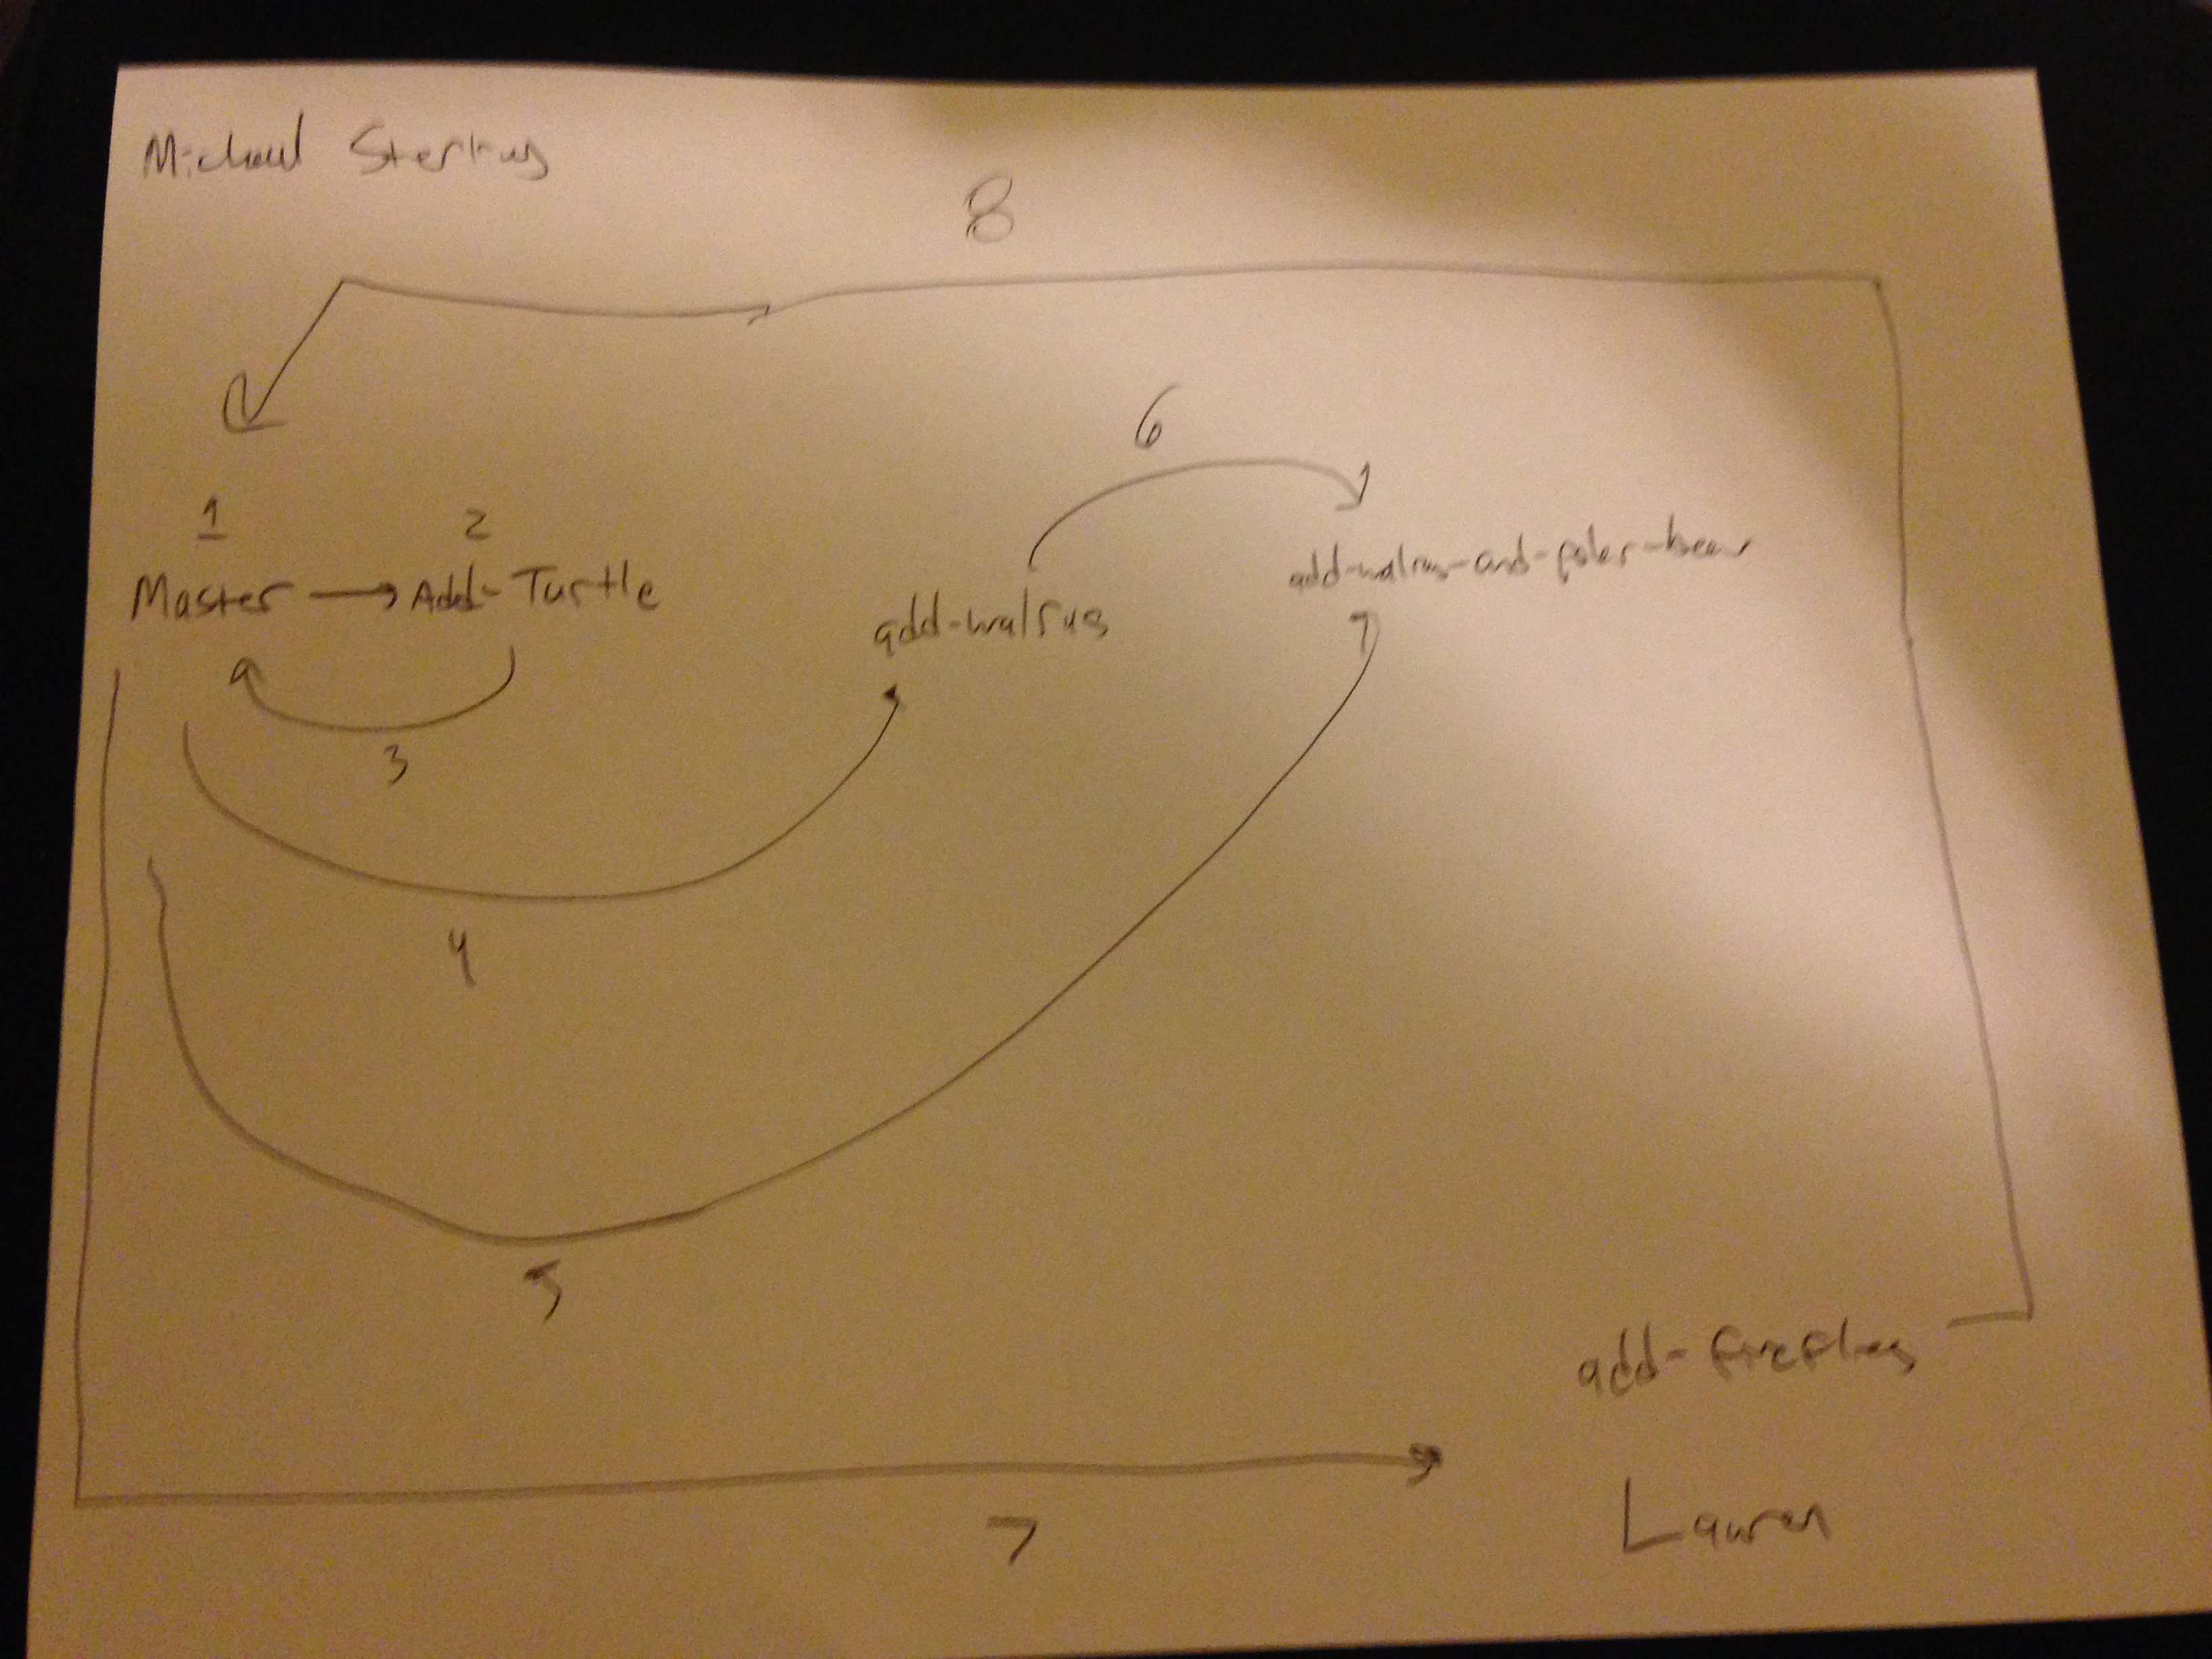 Michael Sterling
8
1 2
Master → Add-Turtle
6
add-walrus
add-walrus-and-polar-bear
3
4
5
add-fireflies
7
Lauren